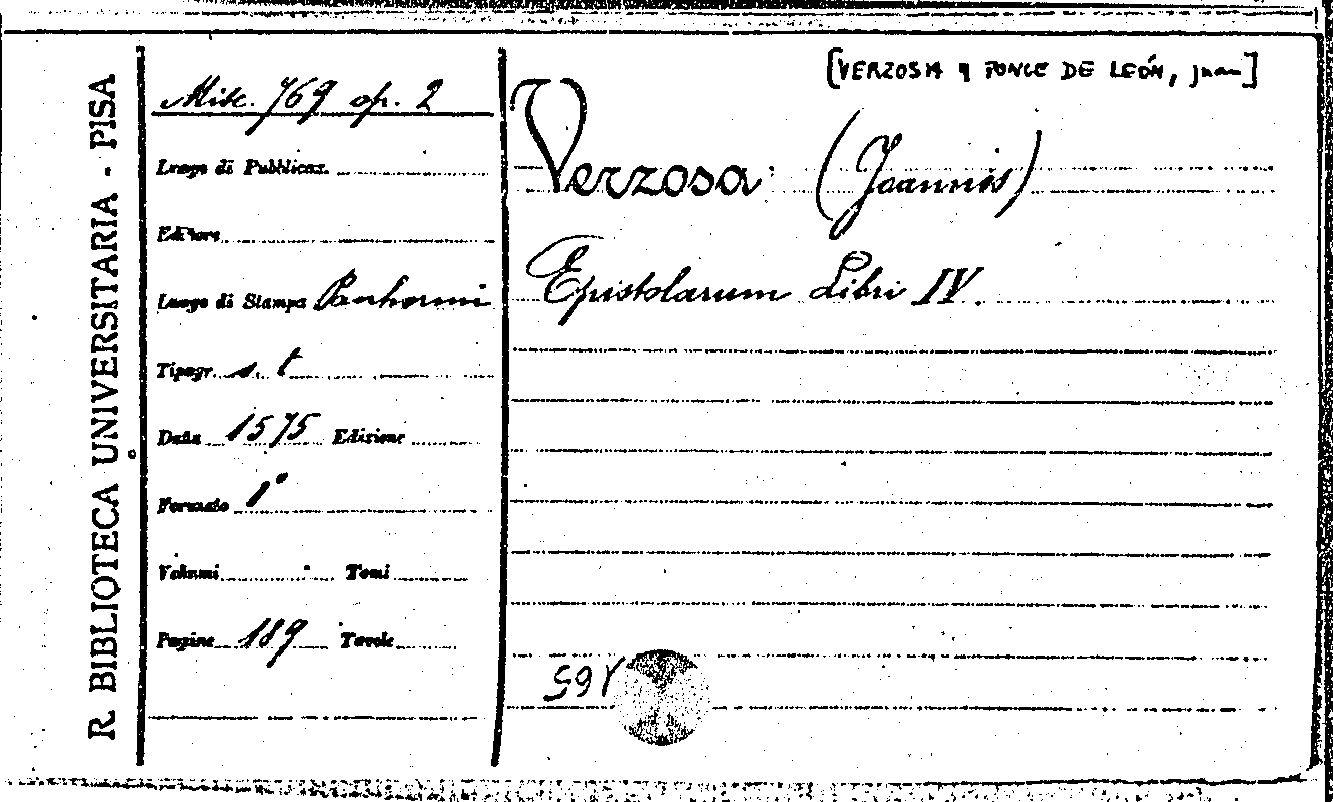 R. BIBLIOTECA UNIVERSITARIA - PISA
Misc. 769 op. 2
Luogo di Pubblicaz.
Editore
Luogo di Stampa Panhormi
Tipogr. s. t
Data 1575 Edizione
Formato 8°
Volumi Tomi
Pagine 189 Tavole
[VERZOSA y PONCE DE LEÓN, Juan]
Verzosa (Joannis)
Epistolarum Libri IV.